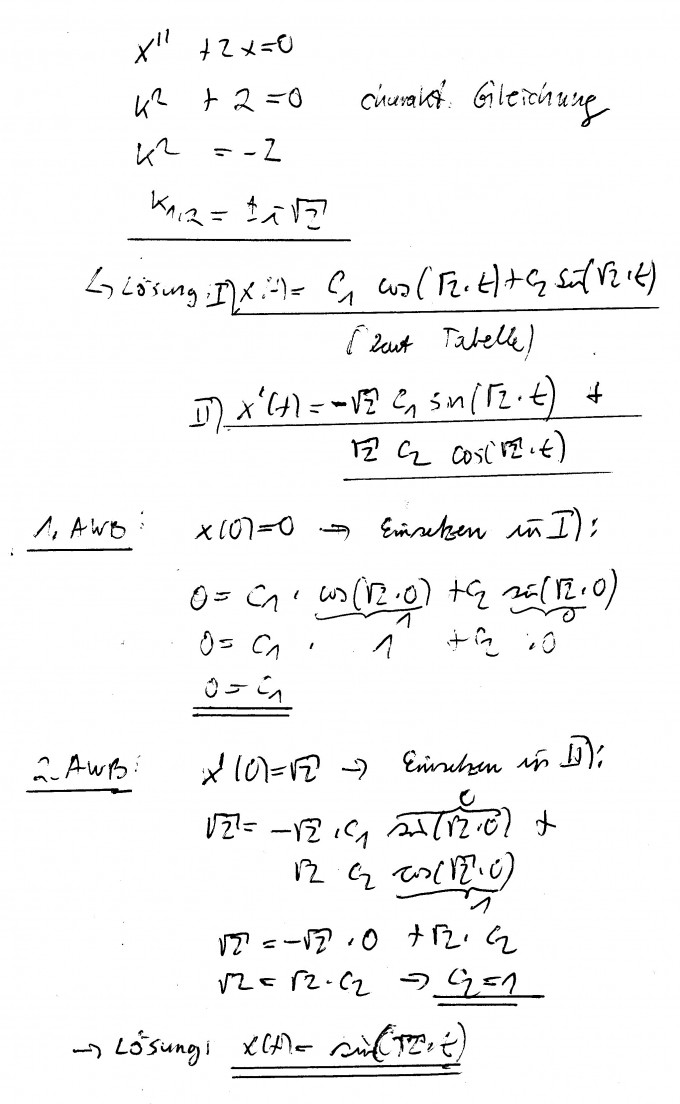 x'' + 2x = 0
k² + 2 = 0 charakt. Gleichung
k² = -2
k₁,₂ = ± i √2
↳ Lösung: I) x(t) = C₁ cos(√2·t) + C₂ sin(√2·t)
(laut Tabelle)
II) x'(t) = -√2 C₁ sin(√2·t) +
√2 C₂ cos(√2·t)
1. AWB: x(0)=0 → Einsetzen in I):
0 = C₁ · cos(√2·0) + C₂ sin(√2·0)
1 0
0 = C₁ · 1 + C₂ · 0
0 = C₁
2. AWB: x'(0)=√2 → Einsetzen in II):
0
√2 = -√2 · C₁ sin(√2·0) +
√2 C₂ cos(√2·0)
1
√2 = -√2 · 0 + √2 · C₂
√2 = √2 · C₂ → C₂ = 1
→ Lösung: x(t) = sin(√2·t)